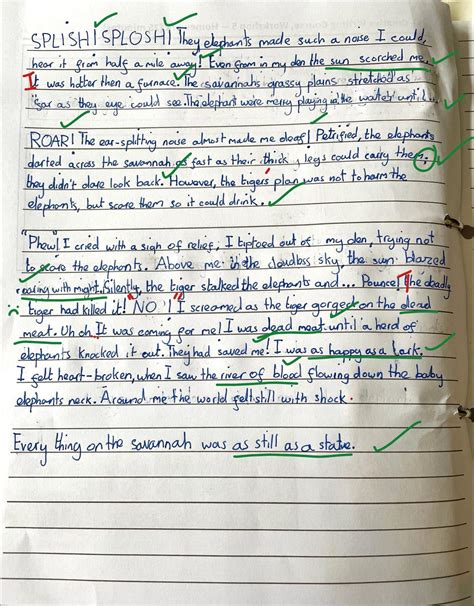 SPLISH! SPLOSH! They elephants made such a noise I could,
hear it from half a mile away! Even from in my den the sun scorched me.
It was hotter then a furnace. The savannahs grassy plains stretched as
"gar as they eye could see. The elephant were merry playing in the waters until...
ROAR! The ear-splitting noise almost made me deaf! Petrified, the elephants
darted across the savannah as fast as their thick, legs could carry them;
they didn't dare look back. However, the tigers plan was not to harm the
elephants, but scare them so it could drink.
"Phew"! I cried with a sigh of relief, I tiptoed out of my den, trying not
to scare the elephants. Above me: in the cloudless sky, the sun blazed
roaring with might. Silently, the tiger stalked the elephants and... Pounce! The deadly
tiger had killed it! "NO"! I screamed as the tiger gorged on the dead
meat. Uh oh. It was coming for me! I was dead meat until a herd of
elephants knocked it out. They had saved me! I was as happy as a lark.
I felt heart-broken, when I saw the river of blood flowing down the baby
elephants neck. Around me the world felt still with shock.
Every thing on the savannah was as still as a statue.